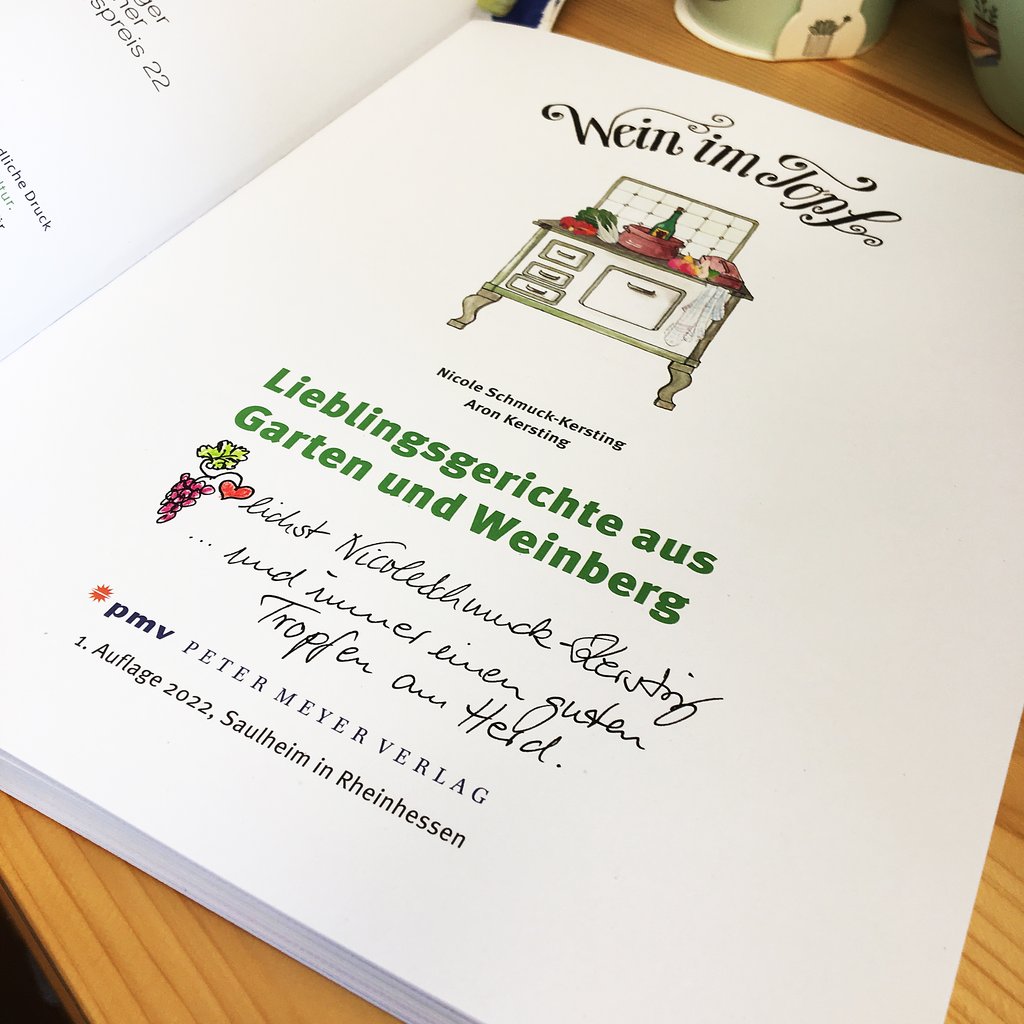 spreis 22
dliche Druck
tur.
Wein im Topf
Nicole Schmuck-Kersting
Aron Kersting
Lieblingsgerichte aus
Garten und Weinberg
lichst Nicole Schmuck-Kersting
... und immer einen guten
Tropfen am Herd.
pmv PETER MEYER VERLAG
1. Auflage 2022, Saulheim in Rheinhessen